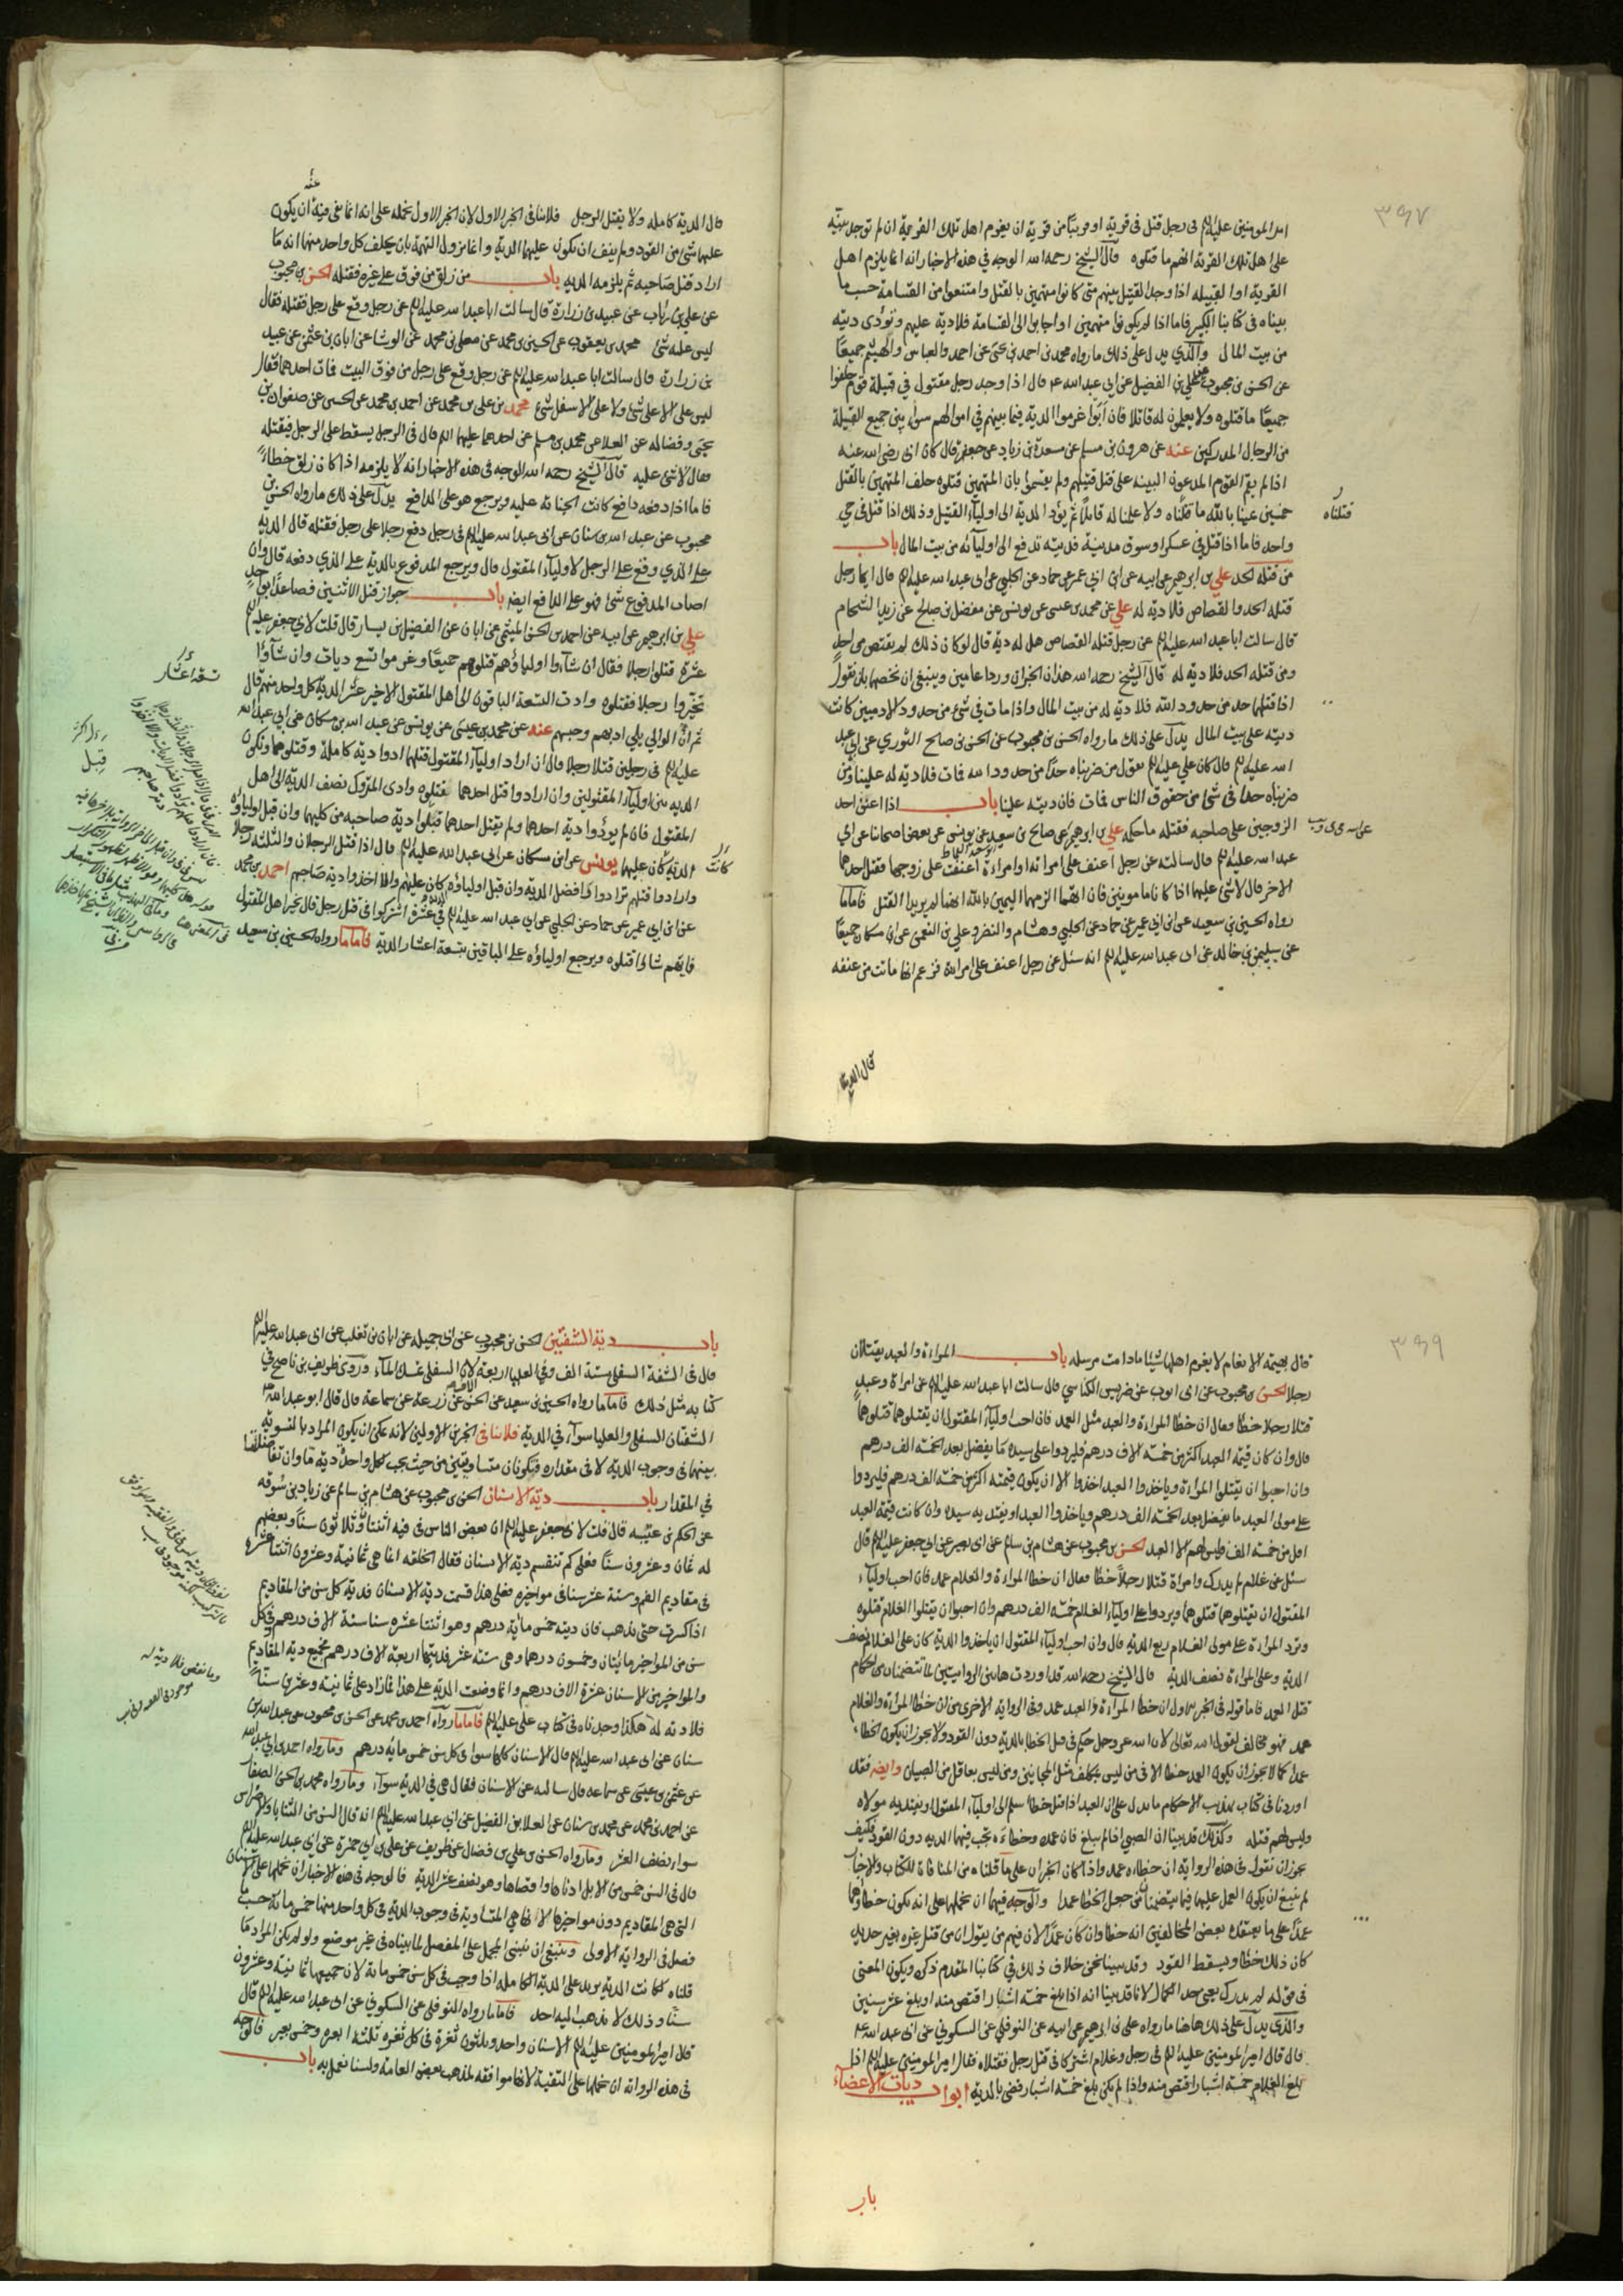 ٣٩٧
امير المومنين عليه الم في رجل قتل في قرية او قريبا من قرية ان يغرم اهل تلك القرية ان لم توجد بينة
على اهل تلك القرية انهم ما قتلوه قال الشيخ رحمه الله الوجه في هذه الاخبار انه انما يلزم اهل
القرية او القبيلة اذا وجد القتيل بينهم متى كانوا متهمين بالقتل وامتنعوا من القسامة حسب ما
بيناه في كتابنا الكبير فاما اذا لم يكونوا متهمين او اجابوا الى القسامة فلا دية عليهم وتؤدى ديته
من بيت المال والذي يدل على ذلك ما رواه محمد بن احمد بن يحيى عن احمد والعباس والهيثم جميعا
عن الحسن بن محبوب عن علي بن الفضيل عن ابي عبد الله ع قال اذا وجد رجل مقتول في قبيلة قوم حلفوا
جميعا ما قتلوه ولا يعلمون له قاتلا فان ابوا غرموا الدية فيما بينهم في اموالهم سواء بين جميع القبيلة
من الرجال المدركين عنه عن هرون بن مسلم عن مسعدة بن زياد عن جعفر قال كان ابي رضي الله عنه
اذا لم يقم القوم المدعون البينة على قتل قتيلهم ولم يقسموا بان المتهمين قتلوه حلف المتهمين بالقتل
خمسين يمينا بالله ما قتلناه ولا علمنا له قاتلا ثم يؤد الدية الى اولياء القتيل وذلك اذا قتل في حي
قتلناه
واحد فاما اذا قتل في عسكر او سوق مدينة فديته تدفع الى اوليائه من بيت المال باب
من قتله الحد علي بن ابرهيم عن ابيه عن ابن ابي عمير عن حماد عن الحلبي عن ابي عبد الله عليه الم قال ايما رجل
قتله الحد والقصاص فلا دية له علي عن محمد بن عيسى عن يونس عن مفضل بن صالح عن زيد الشحام
قال سالت ابا عبد الله عليه الم عن رجل قتله القصاص هل له دية قال لو كان ذلك لم يقتص من احد
ومن قتله الحد فلا دية له قال الشيخ رحمه الله هذان الخبران وردا عامين وينبغي ان نخصهما بان نقول
اذا قتلهما حد من حدود الله فلا دية له من بيت المال واذا مات في شئ من حدود الادميين كانت
ديته على بيت المال يدل على ذلك ما رواه الحسن بن محبوب عن الحسن بن صالح الثوري عن ابي عبد
الله عليه الم قال كان علي عليه الم يقول من ضربناه حدا من حدود الله فمات فلا دية له علينا ومن
ضربناه حدا في شئ من حقوق الناس فمات فان ديته علينا باب اذا اعنف احد
الزوجين على صاحبه فقتله ما حكمه علي بن ابرهيم عن صالح بن سعيد عن يونس عن بعض اصحابنا عن ابي
عبد الله عليه الم قال سالته عن رجل اعنف على امراته او امراءة اعنفت على زوجها فقتل احدهما
الاخر قال لا شئ عليهما اذا كانا مامونين فان اتهما الزمهما اليمين بالله انهما لم يريدا القتل فاما ما
رواه الحسين بن سعيد عن ابن ابي عمير عن حماد عن الحلبي وهشام والنضر وعلي بن النعمن عن ابن مسكان جميعا
عن سليمن بن خالد عن ابي عبد الله عليه الم انه سئل عن رجل اعنف على امراءة فزعم انها ماتت من عنفه
قال الدية
قال الدية كاملة ولا يقتل الرجل فلا ينافي الخبر الاول لان الخبر الاول نحمله على انه انما نفى فيه ان يكون
عنه
عليهما شئ من القود ولم ينف ان يكون عليهما الدية وانما يزول التهمة بان يحلف كل واحد منهما انه ما
اراد قتل صاحبه ثم يلزمه الدية باب من زلق من فوق على غيره فقتله الحسن بن محبوب
عن علي بن رئاب عن عبيد بن زرارة قال سالت ابا عبد الله عليه الم عن رجل وقع على رجل فقتله فقال
ليس عليه شئ محمد بن يعقوب عن الحسين بن محمد عن معلى بن محمد عن الوشا عن ابان بن عثمن عن عبيد
بن زرارة قال سالت ابا عبد الله عليه الم عن رجل وقع على رجل من فوق البيت فمات احدهما فقال
ليس على الاعلى شئ ولا على الاسفل شئ محمد بن علي بن محمد عن احمد بن محمد عن الحسين عن صفوان بن
يحيى وفضاله عن العلا عن محمد بن مسلم عن احدهما عليهما الم قال في الرجل يسقط على الرجل فيقتله
فقال لا شئ عليه قال الشيخ رحمه الله الوجه في هذه الاخبار انه لا يلزمه اذا كان زلق خطاء
فاما اذا دفعه دافع كانت الجناية عليه ويرجع هو على الدافع يدل على ذلك ما رواه الحسن بن
محبوب عن عبد الله بن سنان عن ابي عبد الله عليه الم في رجل دفع رجلا على رجل فقتله قال الدية
على الذي وقع على الرجل لاولياء المقتول قال ويرجع المدفوع بالدية على الذي دفعه قال وان
اصاب المدفوع شئ فهو على الدافع ايضا باب جواز قتل الاثنين فصاعدا بواحد
علي بن ابرهيم عن ابيه عن احمد بن الحسن الميثمي عن ابان عن الفضيل بن يسار قال قلت لابي جعفر عليه الم
عشرة قتلوا رجلا فقال ان شاءوا اولياؤهم قتلوهم جميعا وغرموا تسع ديات وان شاؤا
تخيروا رجلا فقتلوه وادت التسعة الباقون الى اهل المقتول الاخير عشر الدية كل واحد منهم قال
ثم ان الوالي يلي ادبهم وحبسهم عنه عن محمد بن عيسى عن يونس عن عبد الله بن مسكان عن ابي عبد الله
عليه الم في رجلين قتلا رجلا قال ان اراد اولياء المقتول قتلهما ادوا دية كاملة وقتلوهما وتكون
الدية بين اولياء المقتولين وان ارادوا قتل احدهما فقتلوه وادى المتروك نصف الدية الى اهل
المقتول فان لم يؤدوا دية احدهما ولم يقتل احدهما قبلوا دية صاحبه من كليهما وان قبل اولياؤه
الدية كان عليهما يونس عن ابن مسكان عن ابي عبد الله عليه الم قال اذا قتل الرجلان والثلثة رجلا
كانت
وارادوا قتلهم ترادوا فضل الدية وان قبل اولياؤه كان عليهم والا اخذوا دية صاحبهم احمد بن محمد
عن ابن ابي عمير عن حماد عن الحلبي عن ابي عبد الله عليه الم في عشرة اشتركوا في قتل رجل قال يخير اهل المقتول
فايهم شاؤا قتلوه ويرجع اولياؤه على الباقين بتسعة اعشار الدية فاما ما رواه الحسين بن سعيد
تسعة اعشار
قبل
٣٩٩
قال بهيمة الانعام لا يغرم اهلها شيئا ما دامت مرسلة باب المراءة والعبد يقتلان
رجلا الحسن بن محبوب عن ابي ايوب عن ضريس الكناسي قال سالت ابا عبد الله عليه الم عن امراة وعبد
قتلا رجلا خطا فقال ان خطا المراءة والعبد مثل العمد فان احب اولياء المقتول ان يقتلوهما قتلوهما
قال وان كان قيمة العبد اكثر من خمسة الاف درهم فليردوا على سيده ما يفضل بعد الخمسة الف درهم
وان احبوا ان يقتلوا المراءة وياخذوا العبد اخذوا الا ان يكون قيمته اكثر من خمسة الف درهم فليردوا
على مولى العبد ما يفضل بعد الخمسة الف درهم وياخذوا العبد او يفتديه سيده وان كانت قيمة العبد
اقل من خمسة الف فليس لهم الا العبد الحسن بن محبوب عن هشام بن سالم عن ابي بصير عن ابي جعفر عليه الم قال
سئل عن غلام لم يدرك وامراة قتلا رجلا خطا فقال ان خطا المراءة والغلام عمد فان احب اولياء
المقتول ان يقتلوهما قتلوهما ويردوا على اولياء الغلام خمسة الف درهم وان احبوا ان يقتلوا الغلام قتلوه
وترد المراءة على مولى الغلام ربع الدية قال وان احب اولياء المقتول ان ياخذوا الدية كان على الغلام نصف
الدية وعلى المراءة نصف الدية قال الشيخ رحمه الله قد اوردت هاتين الروايتين لما تتضمنان من احكام
قتل العمد فاما قوله في الخبر الاول ان خطا المراءة والعبد عمد وفي الرواية الاخرى من ان خطا المراءة والغلام
عمد فهو مخالف لقول الله تعالى لان الله عز وجل حكم في قتل الخطا بالدية دون القود ولا يجوز ان يكون الخطاء
عمدا كما لا يجوز ان يكون العمد خطا الا في من ليس بمكلف مثل المجانين ومن ليس بعاقل من الصبيان وايضا فقد
اوردنا في كتاب تهذيب الاحكام ما يدل على ان العبد اذا قتل خطا سلم الى اولياء المقتول او يفتديه مولاه
وليس لهم قتله وكذلك قد بينا ان الصبي اذا لم يبلغ فان عمده وخطاءه تجب فيهما الدية دون القود فكيف
يجوز ان نقول في هذه الرواية ان خطاءه عمد واذا كان الخبران على ما قلناه من المنافاة للكتاب والاخبار
لم ينبغ ان يكون العمل عليهما فيما يتضمنان من جعل الخطا عمدا والوجه فيهما ان نحملهما على انه يكون خطاهما
عمدا على ما يعتقده بعض المخالفين انه خطا وان كان عمدا لان فيهم من يقول ان من قتل غيره بغير حديد
كان ذلك خطا ويسقط القود وقد بينا نحن خلاف ذلك في كتابنا المقدم ذكره ويكون المعنى
في قوله لم يدرك يعني حد الكمال لانا قد بينا انه اذا بلغ خمسة اشبار اقتص منه او بلغ عشر سنين
والذي يدل على ذلك هاهنا ما رواه علي بن ابرهيم عن ابيه عن النوفلي عن السكوني عن ابي عبد الله ع
قال قال امير المومنين عليه الم في رجل وغلام اشتركا في قتل رجل فقتلاه فقال امير المومنين عليه الم اذا
بلغ الغلام خمسة اشبار اقتص منه واذا لم يكن بلغ خمسة اشبار قضى بالدية ابواب ديات الاعضاء
باب
باب دية الشفتين الحسن بن محبوب عن ابي جميلة عن ابان بن تغلب عن ابي عبد الله عليه الم
قال في الشفة السفلى ستة الف وفي العليا اربعة لان السفلى تمسك الماء وروى ظريف بن ناصح في
كتابه مثل ذلك فاما ما رواه الحسين بن سعيد عن الحسن عن زرعة عن سماعة قال قال ابو عبد الله ع
الشفتان السفلى والعليا سواء في الدية فلا ينافي الخبرين الاولين لانه يمكن ان يكون المراد بالتسوية
بينهما في وجوب الدية لا في مقداره فيكونان متساويتين من حيث يجب لكل واحدة دية ما وان تفاضلتا
في المقدار باب دية الاسنان الحسن بن محبوب عن هشام بن سالم عن زياد بن سوقه
عن الحكم بن عتيبه قال قلت لابي جعفر عليه الم ان بعض الناس في فيه اثنتان وثلاثون سنا وبعضهم
له ثمان وعشرون سنا فعلى كم تنقسم دية الاسنان فقال الخلقة انما هي ثمانية وعشرون اثنتا عشرة
في مقاديم الفم وستة عشر سنا في مواخيره فعلى هذا قسمت دية الاسنان فدية كل سن من المقاديم
اذا كسرت حتى تذهب فان ديته خمس مائة درهم وهو اثنتا عشرة سنا ستة الاف درهم وفي كل
سن من المواخير مائتان وخمسون درهما وهي ستة عشر فديتها اربعة الاف درهم فجميع دية المقاديم
والمواخير من الاسنان عشرة الاف درهم وانما وضعت الدية على هذا فما زاد على ثمانية وعشرين سنا
فلا دية له هكذا وجدناه في كتاب علي عليه الم فاما ما رواه احمد بن محمد عن الحسن بن محبوب عن عبد الله بن
سنان عن ابي عبد الله عليه الم قال الاسنان كلها سوا في كل سن خمس مائة درهم وما رواه احمد بن ابي عبد الله
عن عثمن بن عيسى عن سماعه قال سالته عن الاسنان فقال هي في الدية سواء وما رواه محمد بن الحسن الصفار
عن احمد بن محمد عن محمد بن سنان عن العلا بن الفضيل عن ابي عبد الله عليه الم انه قال السن من الثنايا والاضراس
سواء نصف العشر وما رواه الحسن بن علي بن فضال عن ظريف عن علي بن ابي حمزة عن ابي عبد الله عليه الم
قال في السن خمس من الابل ادناها واقصاها وهو نصف عشر الدية فالوجه في هذه الاخبار ان نحملها على الاسنان
التي هي المقاديم دون مواخيرها لانها هي المتساوية في وجوب الدية في كل واحد منها خمس مائة حسب ما
فصل في الرواية الاولى وينبغي ان نبني المجمل على المفصل لما بيناه في غير موضع ولو لم يكن المراد ما
قلناه لكانت الدية تزيد على الدية الكاملة اذا وجب في كل سن خمس مائة لان جميعها ثمانية وعشرون
سنا وذلك لا يذهب اليه احد فاما ما رواه النوفلي عن السكوني عن ابي عبد الله عليه الم قال
قال امير المومنين عليه الم الاسنان واحد وثلثون ثغرة في كل ثغرة ثلثة ابعرة وخمس بعير فالوجه
في هذه الرواية ان نحملها على التقية لانها موافقة لمذهب بعض العامة ولسنا نعمل به باب